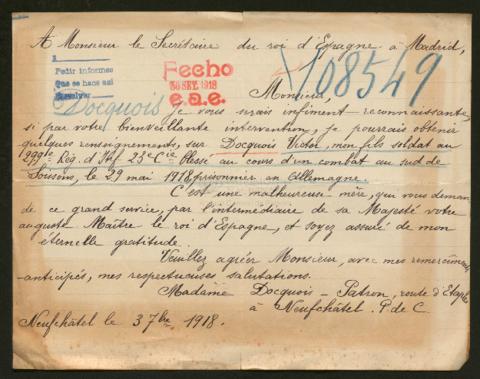 A Monsieur le Secrétaire du roi d'Espagne à Madrid,
Pedir informes
Que se haga así
Fecho
30 SET. 1918
e.a.e.
108549
Docquois
Monsieur,
Je vous serais infiment reconnaissante,
si par votre bienveillante intervention, je pourrais obtenir
quelques renseignements, sur Docquois Victor, mon fils soldat au
Rég. d'Inf. 23e Cie Blessé au cours d'un combat au sud de
Soissons, le 29 mai 1918, prisonnier en Allemagne.
C'est une malheureuse mère, qui vous demande
de ce grand service, par l'intermédiaire de sa Majesté votre
auguste Maître le roi d'Espagne, et soyez assuré de mon
éternelle gratitude.
Veuillez agréer Monsieur, avec mes remercîments
anticipés, mes respectueuses salutations.
Madame Docquois-Patron, route d'Etaples
à Neufchâtel. P. de C.
Neufchâtel le 3 7bre 1918.